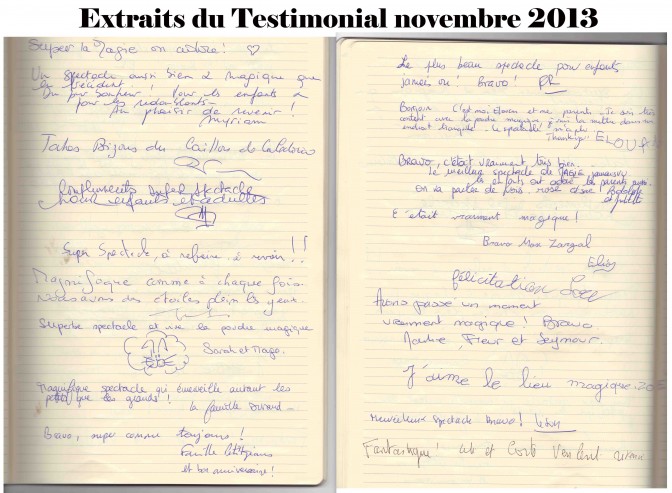 Extraits du Testimonial novembre 2013
Super la Magie on adore !
Un spectacle aussi bien & magique que
le précédent !
Du pur bonheur ! Pour les enfants &
pour les redoublants -
Au plaisir de revenir !
Myriam
du
spectacle
pour enfants et adultes
Super Spectacle, à refaire à revoir !!
Magnifique comme à chaque fois.
Nous avons des étoiles plein les yeux.
Superbe spectacle et vive la poudre magique
Sarah et Tiago.
Magnifique spectacle qui émerveille autant les
petits que les grands !
la famille
Bravo, super comme toujours !
Famille
et bon anniversaire !
Le plus beau spectacle pour enfants
jamais vu ! Bravo !
Bonjour c'est moi et mes parents. Je suis très
content avec la poudre magique je vais la mettre dans un
endroit tranquille. Le spectacle m'a plu
ELOU
Bravo, c'était vraiment très bien.
Le meilleur spectacle de
les enfants ont adoré les parents aussi.
On va parler de
C'était vraiment magique !
Bravo Max Zargal
Elias
félicitation
Avons passé un moment
vraiment magique ! Bravo
Fleur et Seymour.
J'aime le lieu magique.
Merveilleux spectacle bravo !
Fantastique ! et veulent